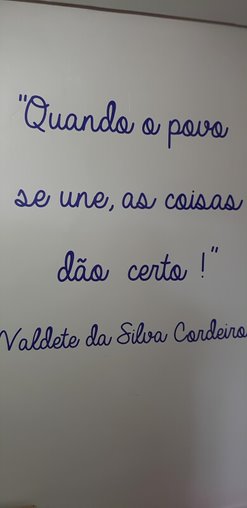 "Quando o povo
se une, as coisas
dão certo !"
Valdete da Silva Cordeiro